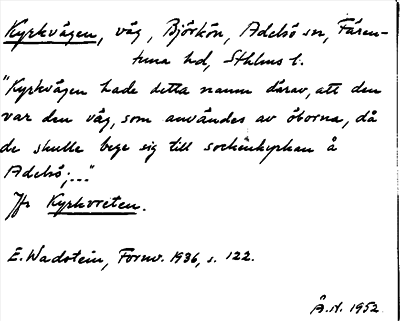 Kyrkvägen, väg, Björkön, Adelsö sn, Fären-
tuna hd, Sthlms l.
"Kyrkvägen hade detta namn därav, att den
var den väg, som användes av öborna, då
de skulle bege sig till sockenkyrkan å
Adelsö;..."
Jfr Kyrkvreten.
E. Wadstein, Fornv. 1936, s. 122.
Å.N. 1952